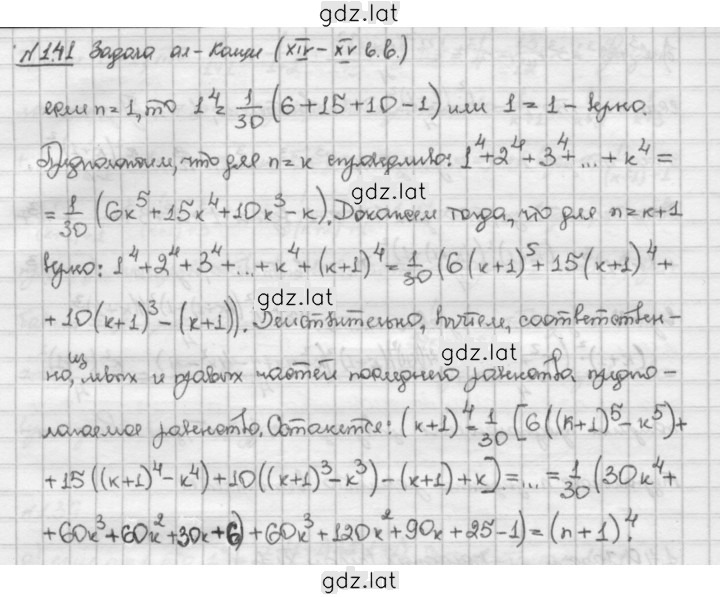 gdz.lat
№141 Задача ал-Каши (XIV-XV в.в.)
если n=1, то 1^4 = 1/30 (6+15+10-1) или 1=1 - верно.
Предположим, что для n=k справедливо: 1^4+2^4+3^4+...+k^4 =
gdz.lat
= 1/30 (6k^5+15k^4+10k^3-k). Докажем тогда, что для n=k+1
верно: 1^4+2^4+3^4+...+k^4+(k+1)^4 = 1/30 (6(k+1)^5+15(k+1)^4+
gdz.lat
+10(k+1)^3-(k+1)). Действительно, вычтем, соответствен-
gdz.lat
но, из левых и правых частей последнего равенства предпо-
лагаемое равенство. Останется: (k+1)^4 = 1/30 [6((k+1)^5-k^5)+
+15((k+1)^4-k^4)+10((k+1)^3-k^3)-(k+1)+k] = ... = 1/30 (30k^4+
+60k^3+60k^2+30k+6)+60k^3+120k^2+90k+25-1) = (n+1)^4.
gdz.lat